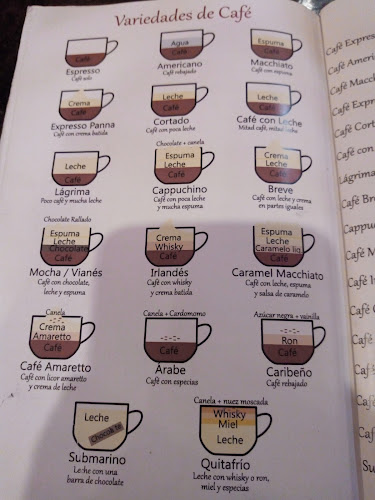 Variedades de Café
Café
Espresso
Café solo
Agua
Café
Americano
Café rebajado
Espuma
Café
Macchiato
Café con espuma
Crema
Café
Expresso Panna
Café con crema batida
Leche
Café
Cortado
Café con poca leche
Leche
Café
Café con Leche
Mitad café, mitad leche
Leche
Café
Lágrima
Poco café y mucha leche
Chocolate + canela
Espuma
Leche
Café
Cappuchino
Café con poca leche
y mucha espuma
Crema
Leche
Café
Breve
Café con leche y crema
en partes iguales
Chocolate Rallado
Espuma
Leche
Chocolate
Café
Mocha / Vianés
Café con chocolate,
leche y espuma
Crema
Whisky
Café
Irlandés
Café con whisky
y crema batida
Espuma
Leche
Caramelo liq
Café
Caramel Macchiato
Café con leche, espuma
y salsa de caramelo
Canela
Crema
Amaretto
Café
Café Amaretto
Café con licor amaretto
y crema de leche
Canela + Cardomomo
Café
Árabe
Café con especias
Azúcar negra + vainilla
Ron
Café
Caribeño
Café rebajado
Leche
Chocolate
Submarino
Leche con una
barra de chocolate
Canela + nuez moscada
Whisky
Miel
Leche
Quitafrio
Leche con whisky o ron,
miel y especias
Café Expres
Café Ameri
Café Mac
Café Expr
Café Cort
Café con
Lágrima
Café Br
Cappu
Café M
Café I
Café C
Café
Café
Café
Su